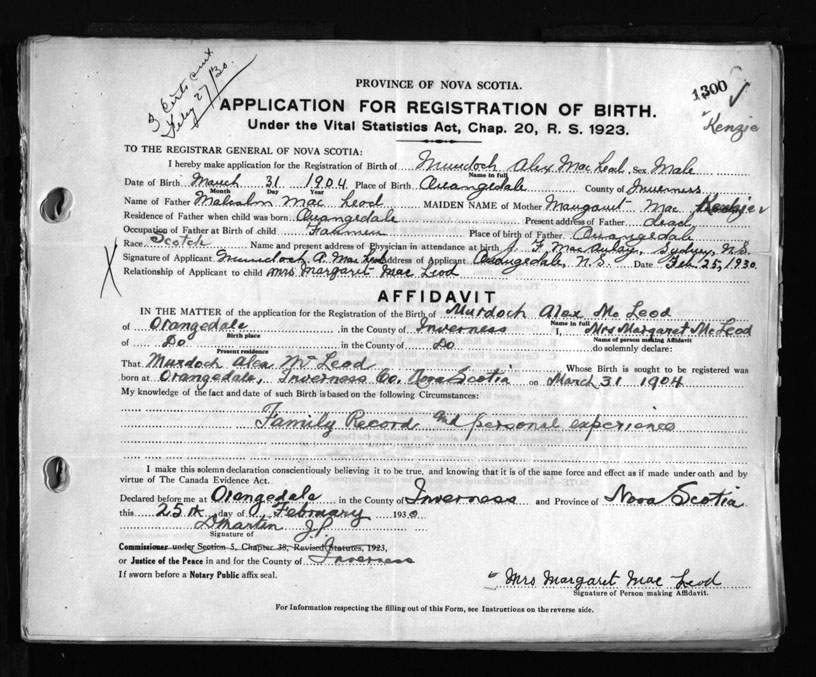 3 Certs sent
Feby 27/30.
PROVINCE OF NOVA SCOTIA.
1300 ✓
APPLICATION FOR REGISTRATION OF BIRTH.
Under the Vital Statistics Act, Chap. 20, R. S. 1923.
Kenzie
TO THE REGISTRAR GENERAL OF NOVA SCOTIA:
I hereby make application for the Registration of Birth of Murdoch Alex Mac Leod Sex Male
Name in full
Date of Birth March 31 1904 Place of Birth Orangedale County of Inverness
Month Day Year
Name of Father Malcolm Mac Leod MAIDEN NAME of Mother Margaret Mac Kenzie
Residence of Father when child was born Orangedale Present address of Father dead
Occupation of Father at Birth of child Farmer Place of birth of Father Orangedale
Race Scotch Name and present address of Physician in attendance at birth J. F. MacAulay, Sydney, N.S.
Signature of Applicant Murdoch A. Mac Leod Address of Applicant Orangedale, N.S. Date Feb 25, 1930
Relationship of Applicant to child Mrs Margaret Mac Leod
AFFIDAVIT
IN THE MATTER of the application for the Registration of the Birth of Murdoch Alex Mc Leod
Name in full
of Orangedale, in the County of Inverness I, Mrs Margaret McLeod
Birth place Name of person making Affidavit
of Do in the County of Do do solemnly declare:
Present residence
That Murdoch Alex Mc Leod Whose Birth is sought to be registered was
born at Orangedale, Inverness Co. Nova Scotia on March 31 1904
My knowledge of the fact and date of such Birth is based on the following Circumstances:
Family Record and personal experience
I make this solemn declaration conscientiously believing it to be true, and knowing that it is of the same force and effect as if made under oath and by
virtue of The Canada Evidence Act.
Declared before me at Orangedale in the County of Inverness and Province of Nova Scotia
this 25th day of February 1930
D Martin J.P.
Signature of
Commissioner under Section 5, Chapter 38, Revised Statutes, 1923,
or Justice of the Peace in and for the County of Inverness
If sworn before a Notary Public affix seal.
Mrs Margaret Mac Leod
Signature of Person making Affidavit.
For Information respecting the filling out of this Form, see Instructions on the reverse side.